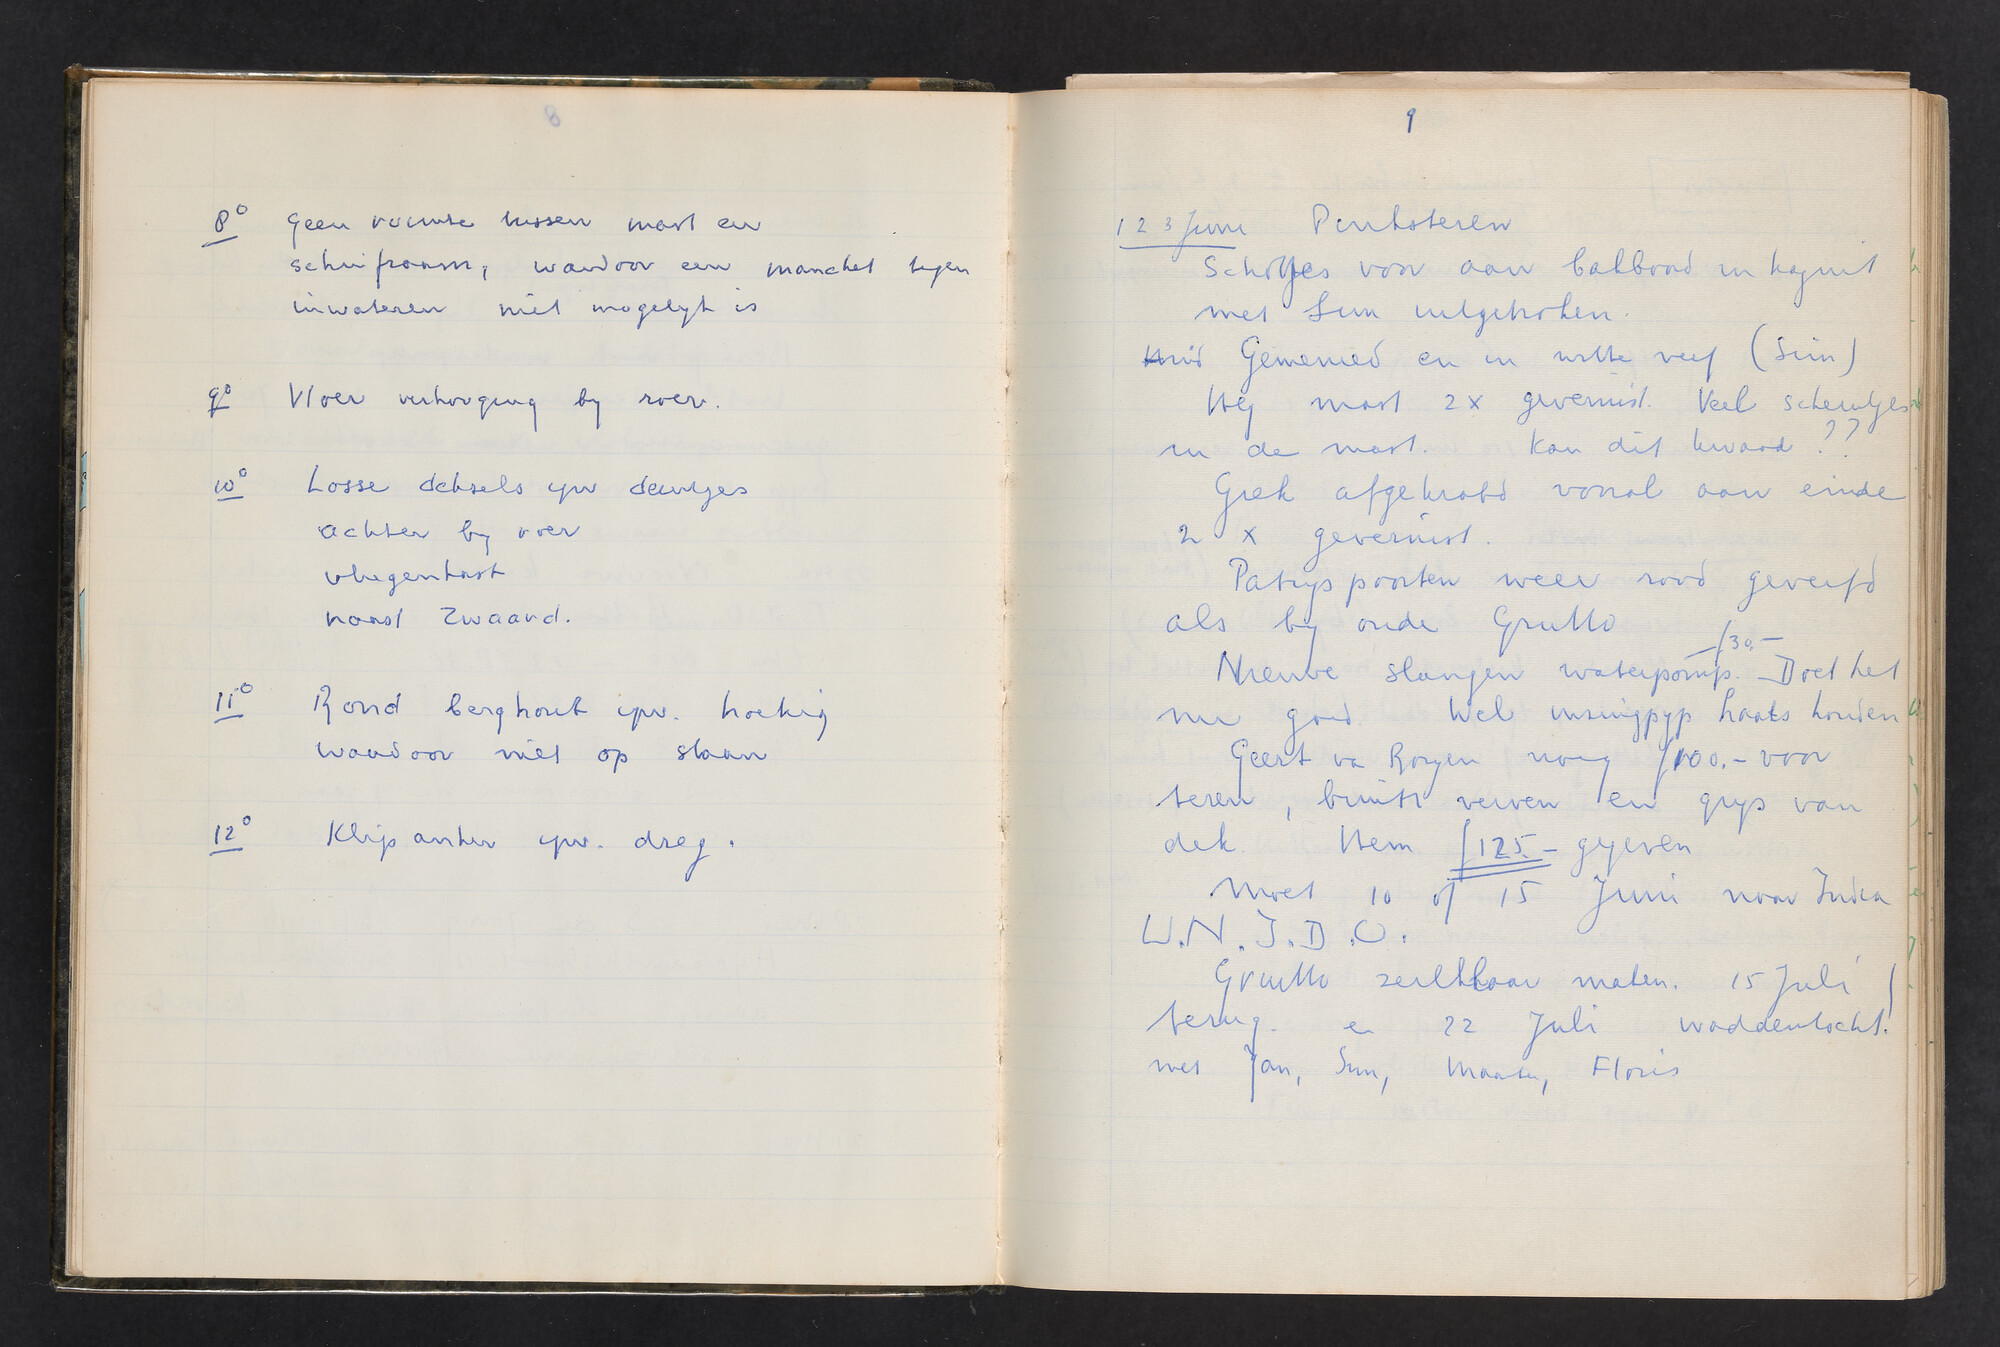 8
8° Geen ruimte tussen mast en
schuifraam, waardoor een manchet tegen
inwateren niet mogelyk is
9° Vloer verhoging by roer.
10° Losse deksels ipv deurtjes
achter by roer
vliegenkast
naast zwaard.
11° Rond berghout ipv. hoekig
waardoor niet op staan
12° Klip anker ipv. dreg.
9
1 2 3 Juni Pinksteren
Schotjes voor aan bakboord in kajuit
met Siem uitgebroken.
Gemenied en in witte verf (Siem)
Hg mast 2x gevernist. Veel scheurtjes
in de mast. Kan dit kwaad ??
Giek afgekrabd vooral aan einde
2 x gevernist.
Patryspoorten weer rood geverfd
als by oude Grutto
f30,-
Nieuwe slangen waterpomp. Doet het
nu goed. Wel haaks houden
Geert va nog f100,- voor
teren, buiten verven en grys van
dek. Hem f125.- gegeven
Moet 10 of 15 Juni naar India
U.N.I.D.O.
Grutto zeilklaar maken. 15 Juli
terug. en 22 Juli waddentocht!
met Jan, Siem, Maarten, Floris